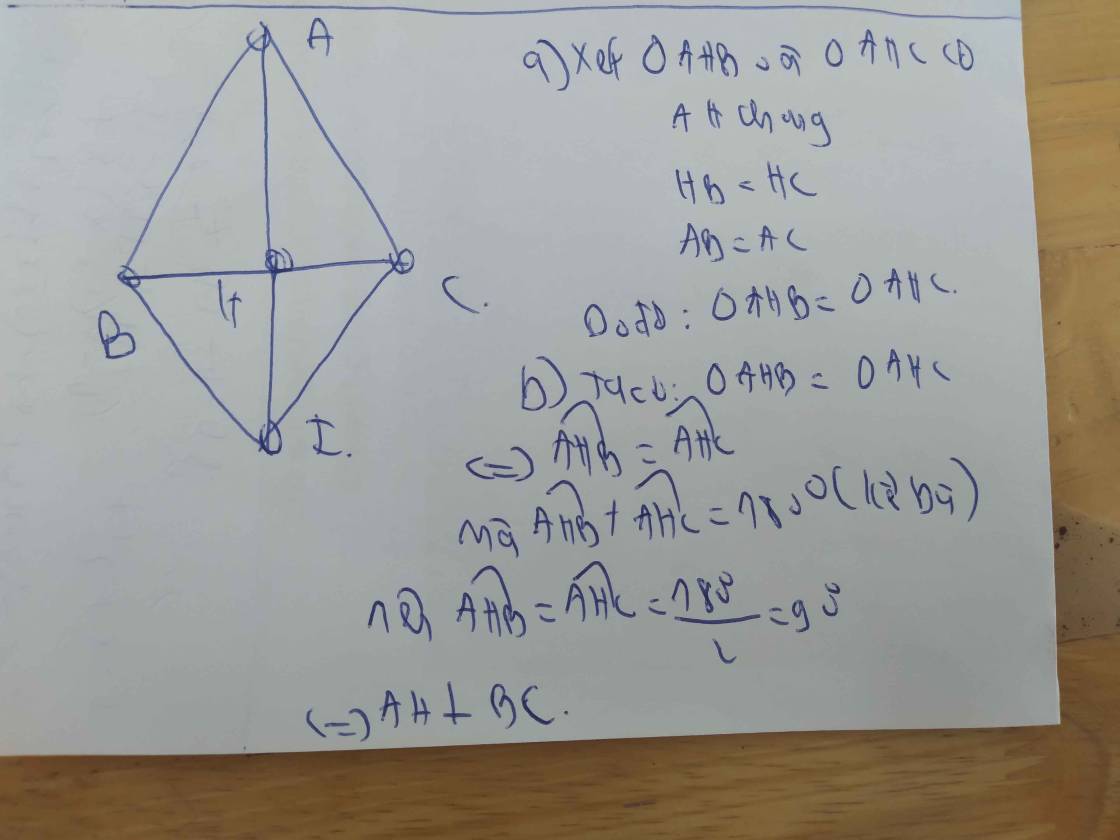 A
B
H
C.
I.
a) Xét Δ AHB và Δ AHC có
AH chung
HB = HC
AB = AC
Do đó: Δ AHB = Δ AHC.
b) Ta có: Δ AHB = Δ AHC
(=) AHB = AHC
mà AHB + AHC = 180° (kề bù)
nên AHB = AHC = 180° / 2 = 90°
(=) AH ⊥ BC.